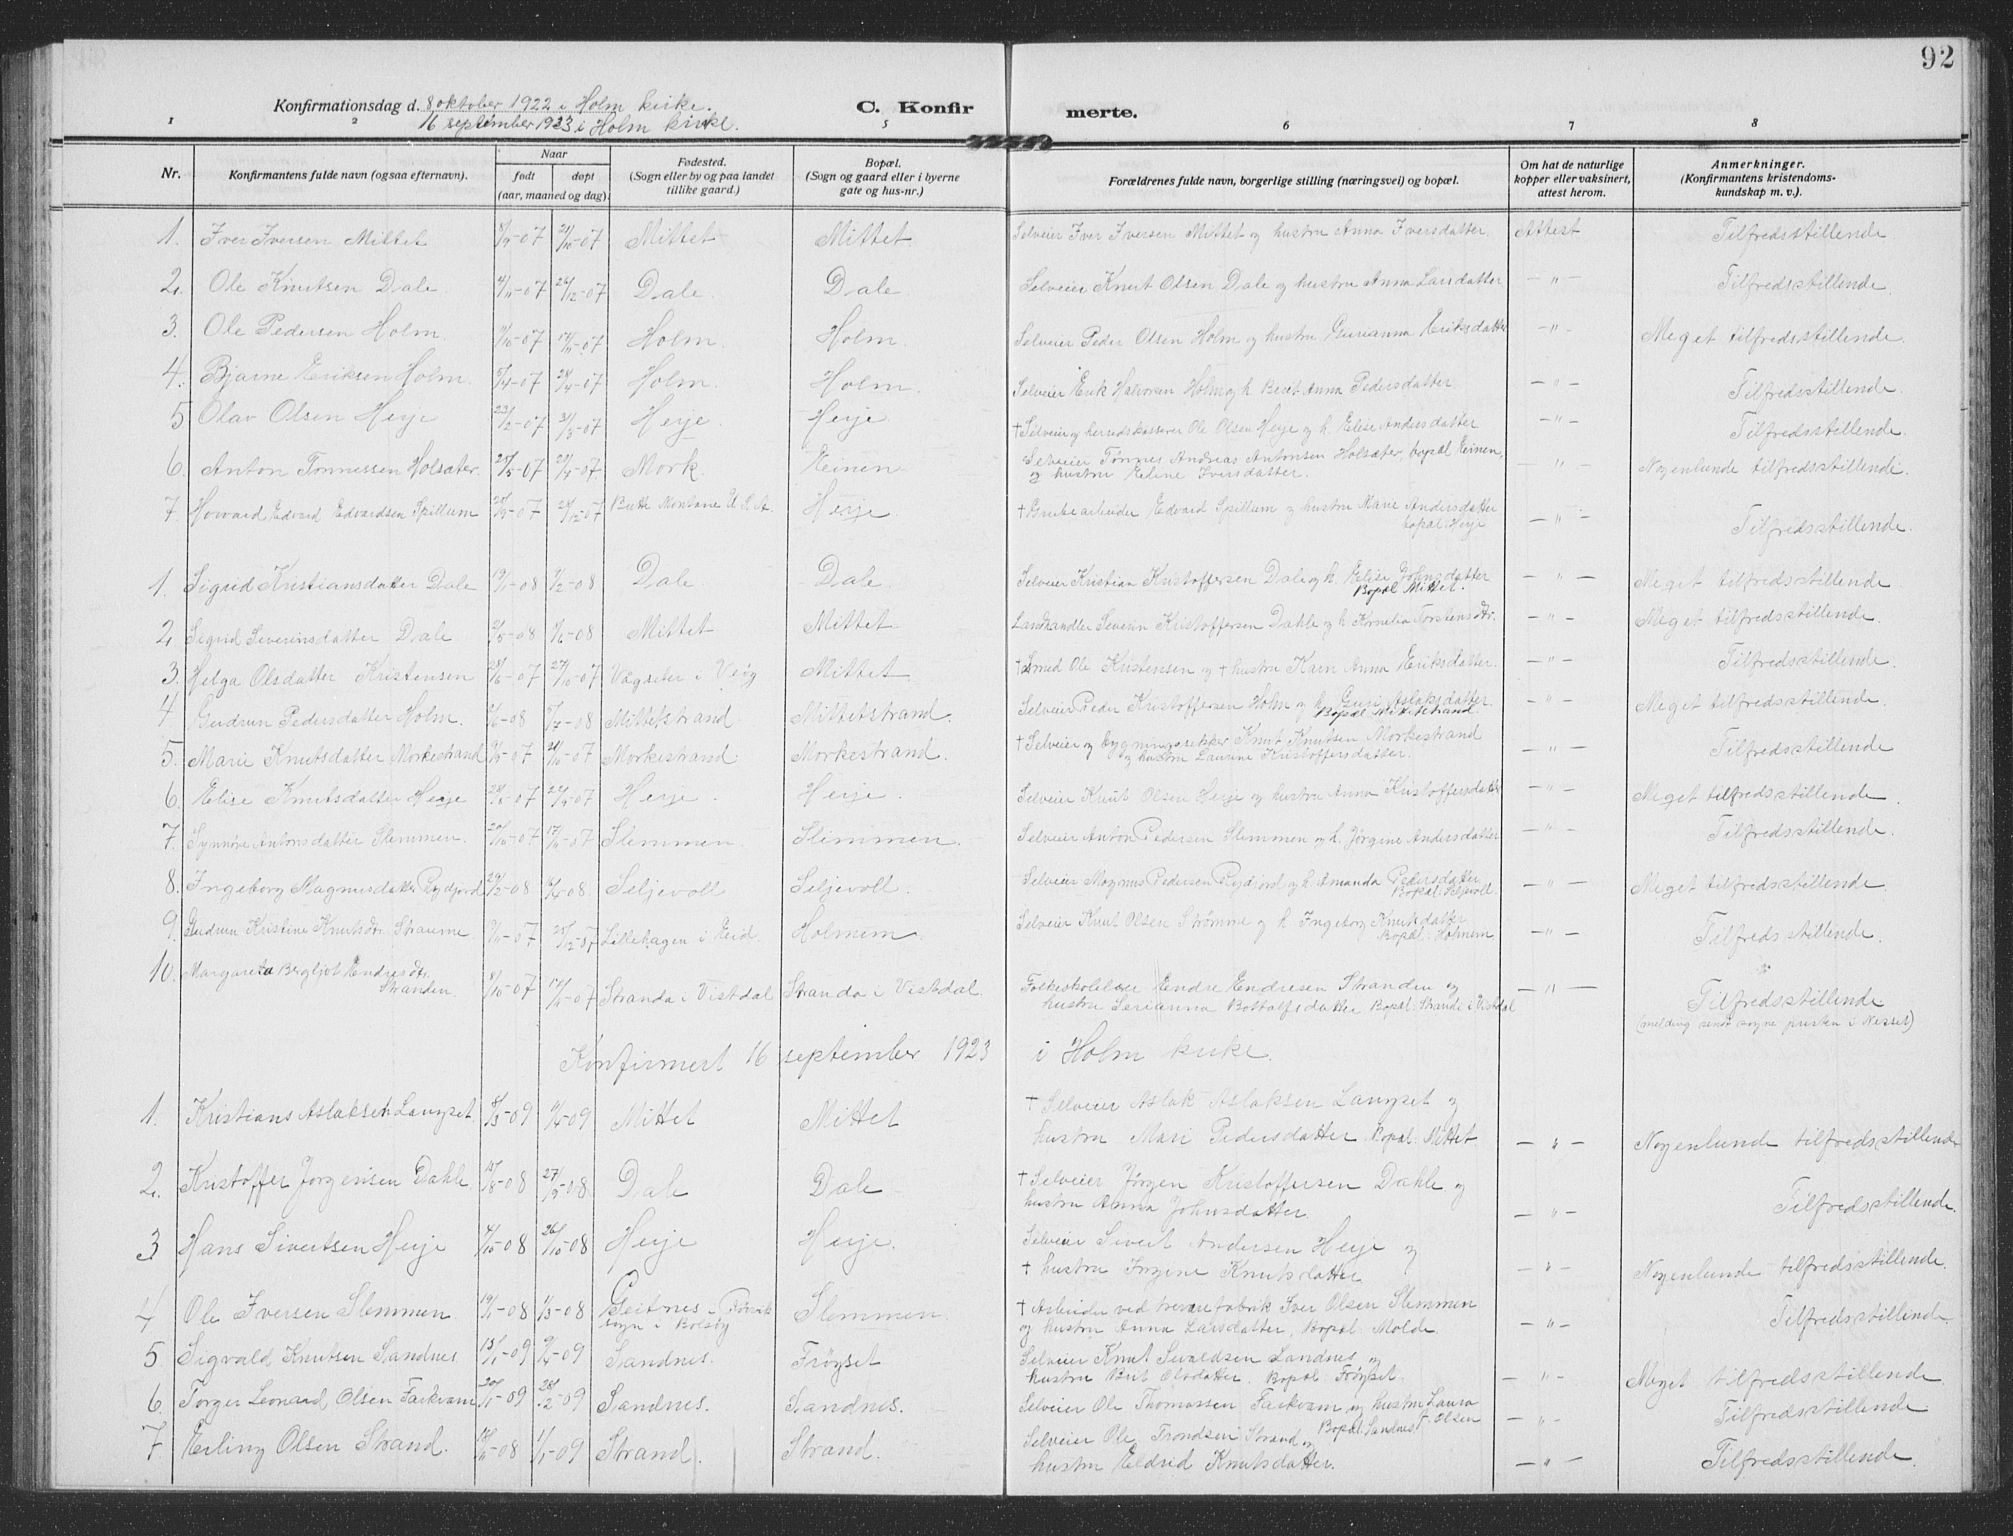 92
Konfirmationsdag d. 8 oktober 1922 i Holm kirke.
16 september 1923 i Holm kirke.
C. Konfirmerte.
1 2 5 6 7 8
Nr. Konfirmantens fulde navn (ogsaa efternavn). Naar født døpt (aar, maaned og dag) Fødested. (Sogn eller by og paa landet tillike gaard.) Bopæl. (Sogn og gaard eller i byerne gate og hus-nr.) Forældrenes fulde navn, borgerlige stilling (næringsvei) og bopæl. Om hat de naturlige kopper eller vaksinert, attest herom. Anmerkninger. (Konfirmantens kristendomskundskap m. v.).
1. Iver Iversen Mittet -07 -07 Mittet Mittet Selveier Iver Iversen Mittet og hustru Anna Iversdatter. Attest Tilfredsstillende
2. Ole Knutsen Dale 4/11-07 26/12-07 Dale. Dale Selveier Knut Olsen Dale og hustru Anna Larsdatter — " — Tilfredsstillende.
3. Ole Pedersen Holm. -07 -07 Holm. Holm. Selveier Peder Olsen Holm og hustru Gurianna Eriksdatter - " - Meget tilfredsstillende.
4. Bjarne Eriksen Holm. -07 -07 Holm. Holm. Selveier Erik Halvorsen Holm og h. Berit Anna Pedersdatter — " — Tilfredsstillende.
5 Olav Olsen Herje 23/2-07 31/3-07 Herje. Herje. † Selveier og herredskasserer Ole Olsen Herje og h. Elise Andersdatter — " — Tilfredsstillende.
6. Anton Tønnessen Holsæter. -07 -07 Mork. Einen Selveier Tønnes Andreas Antonsen Holsæter, bopæl Einen, og hustru Eline Iversdatter. — " — Nogenlunde tilfredsstillende.
7. Howard Edvard Edvardsen Spillum -07 -07 Butte Montana U. S. A. Herje. † Grubearbeider Edvard Spillum og hustru Marie Andersdatter bopæl: Herje — " — Tilfredsstillende.
1. Sigrid Kristiansdatter Dale -08 -08 Dale Dale Selveier Kristian Kristoffersen Dale og h. Elise Johnsdatter Bopæl Mittet. — " — Meget tilfredsstillende
2 Sigrid Severinsdatter Dale -08 -08 Mittet Mittet. Landhandler Severin Kristoffersen Dahle og h. Kornelia Torstensdtr. — " — Meget tilfredsstillende.
3. Helga Olsdatter Kristensen -07 -07 Vågsæter i Veøy Mittet. † Smed Ole Kristensen og † hustru Karn Anna Eriksdatter. — " — Tilfredsstillende.
4 Gudrun Pedersdatter Holm. -08 -08 Mittetstrand Mittetstrand. Selveier Peder Kristoffersen Holm og h. Guri Aslaksdatter. Bopæl Mittetstrand — " — Meget tilfredsstillende.
5. Marie Knutsdatter Morkestrand -07 -07 Morkestrand Morkestrand. † Selveier og Knut Knutsen Morkestrand og hustru Laurine Kristoffersdatter. — " — Tilfredsstillende.
6. Elise Knutsdatter Herje -07 -07 Herje. Herje. Selveier Knut Olsen Herje og hustru Anna Kristoffersdatter — " — Meget tilfredsstillende.
7. Synnøve Antonsdatter Slemmen. -07 -07 Slemmen. Slemmen. Selveier Anton Pedersen Slemmen og h. Jørgine Andersdatter — " — Tilfredsstillende.
8. Ingeborg Magnusdatter Rydjord 29/2-08 -08 Seljevoll Seljevoll. Selveier Magnus Pedersen Rydjord og h. Amanda Pedersdatter. Bopæl: Seljevoll. — " — Meget tilfredsstillende.
9. Gudrun Kristine Knutsdtr. -07 -07 Lillehagen i Eid. Holmem. Selveier Knut Olsen Strømme og h. Ingeborg Knutsdatter Bopæl: Holmem — " — Tilfredsstillende.
10. Margareta Bergljot Endresdtr. Stranden. 8/10-07 -07 Stranda i Vistdal Stranda i Vistdal. Folkeskolelærer Endre Endresen Stranden og hustru Serianna Bottolfsdatter Bopæl: Stranda i Vistdal — " — Tilfredsstillende (melding sendt sogne presten i Nesset)
Konfirmert 16 september 1923 i Holm kirke.
1. Kristians Aslaksen Langset. -09 -09 Mittet Mittet † Selveier Aslak Aslaksen Langset og hustru Mari Pedersdatter. Bopæl: Mittet. — " — Nogenlunde tilfredsstillende
2. Kristoffer Jørgensen Dahle. -08 27/9-08 Dale Dale † Selveier Jørgen Kristoffersen Dahle og hustru Anna Johnsdatter. — " — Tilfredsstillende.
3 Hans Sivertsen Herje 4/10-08 26/10-08 Herje Herje. Selveier Sivert Andersen Herje og † hustru Jørgine Knutsdatter — " — Nogenlunde tilfredsstillende.
4 Ole Iversen Slemmen -08 1/3-08 Geitnes i Rørvik sogn i Bolsøy Slemmen. † Arbeider ved trevarefabrik Iver Olsen Slemmen og hustru Anna Larsdatter, Bopæl: Molde. — " — Tilfredsstillende.
5 Sigvald Knutsen Sandnes. 13/1-09 -09 Sandnes. Frøyset Selveier Knut Sivaldsen Sandnes og hustru Brit Olsdatter. Bopæl Frøyset. — " — Meget tilfredsstillende.
6. Torger Leonard Olsen Farkvam -09 28/2-09 Sandnes. Sandnes. Selveier Ole Thomassen Farkvam og hustru Laura F. Olsen Bopæl: Sandnes. — " — Tilfredsstillende
7. Erling Olsen Strand. -08 1/1-09 Strand. Strand. Selveier Ole Trondsen Strand og hustru Eldrid Knutsdatter. — " — Tilfredsstillende.